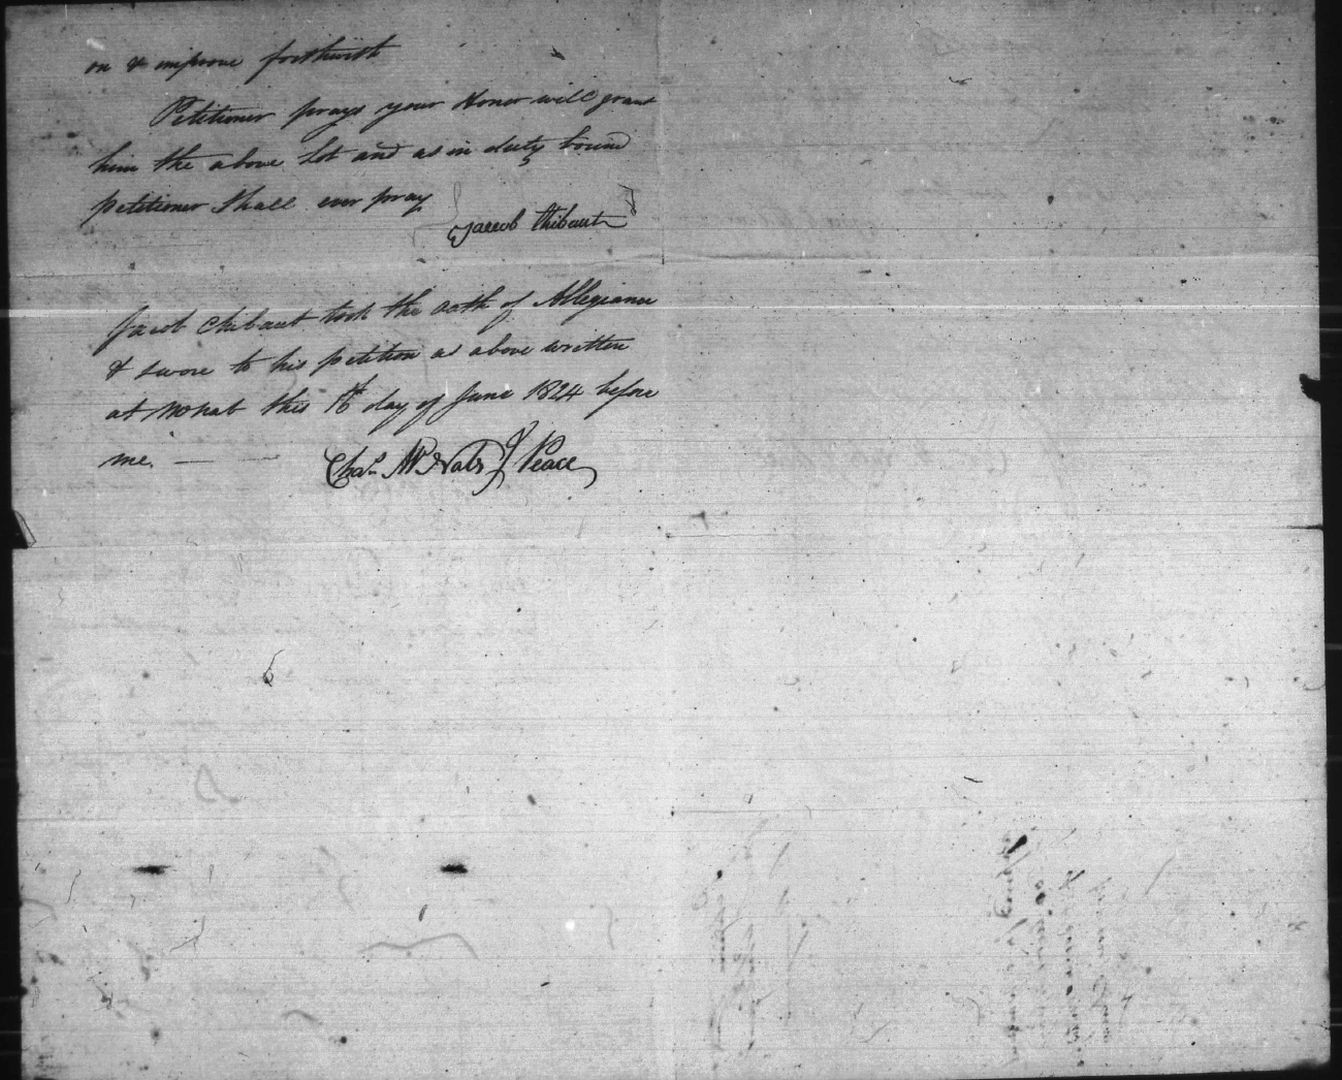 on & improve forthwith
Petitioner prays your Honor will grant
him the above Lot and as in duty bound
petitioner Shall ever pray
Jacob thibaut
Jacob thibaut took the oath of Allegiance
& swore to his petition as above written
at this day of June 1824 before
me. —— Peace